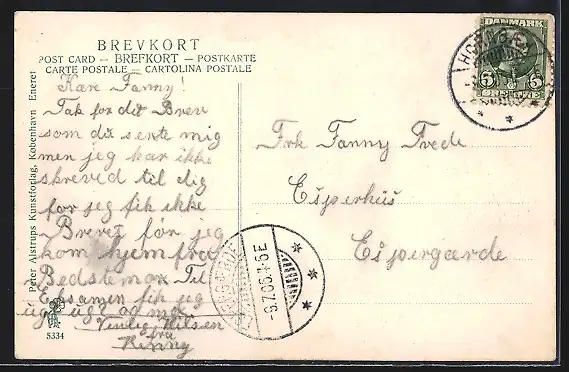 BREVKORT
POST CARD — BREFKORT — POSTKARTE
CARTE POSTALE — CARTOLINA POSTALE
Peter Alstrups Kunstforlag, Kobenhavn Eneret
5334
Kære Fanny!
Tak for dit Brev
som du sente mig
men jeg har ikke
skrevid til dig
for jeg fik ikke
Brevet før jeg
kom hjem fra
Bedstemor Til
Eksamen fik jeg
ug ug
Venlig Hilsen
fra
DANMARK
5 5
ØRE
-6.7.06.4-5E
Frk Fanny Tvede
Esperhus
Espergærde